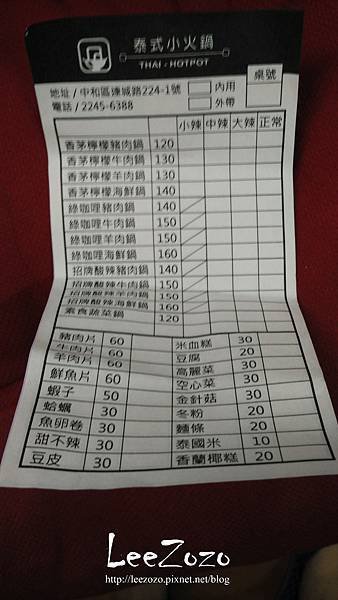 泰式小火鍋
THAI - HOTPOT
桌號
地址 / 中和區連城路224-1號
內用
電話 / 2245-6388
外帶
小辣 中辣 大辣 正常
香茅檸檬豬肉鍋 120
香茅檸檬牛肉鍋 130
香茅檸檬羊肉鍋 130
香茅檸檬海鮮鍋 140
綠咖哩豬肉鍋 140
綠咖哩牛肉鍋 150
綠咖哩羊肉鍋 150
綠咖哩海鮮鍋 160
招牌酸辣豬肉鍋 140
招牌酸辣牛肉鍋 150
招牌酸辣羊肉鍋 150
招牌酸辣海鮮鍋 160
素食蔬菜鍋 120
豬肉片 60 米血糕 30
牛肉片 豆腐 20
羊肉片 60 高麗菜 30
鮮魚片 60 空心菜 30
蝦子 50 金針菇 30
蛤蠣 30 冬粉 20
魚卵卷 30 麵條 20
甜不辣 30 泰國米 10
豆皮 30 香蘭椰糕 20
LeeZozo
http://leezozo.pixnet.net/blog